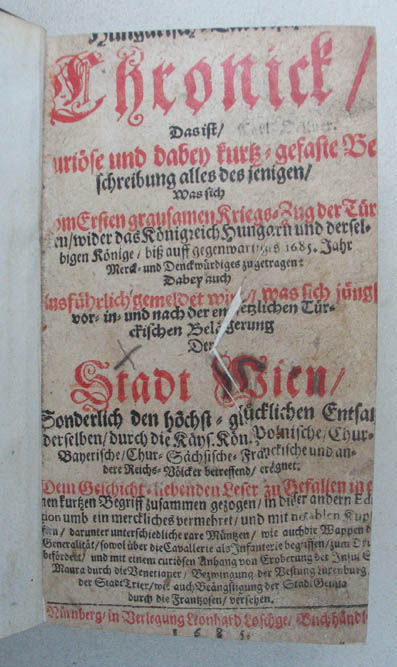 Chronick /
Das ist /
uriöse und dabey kurtz-gefaste Be
schreibung alles des jenigen /
Was sich
om Ersten grausamen Kriegs-Zug der Tür
en / wider das Königreich Hungarn und dersel-
bigen Könige / biß auff gegenwärtiges 1685. Jahr
Merck- und Denckwürdiges zugetragen:
Dabey auch
usführlich gemeldet wird / was sich jüngs
vor- in- und nach der entsetzlichen Tür-
ckischen Belägerung
Der
Stadt Wien /
Sonderlich den höchst-glücklichen Entsa
derselben / durch die Kays. Kön. Polnische / Chur-
Bayerische / Chur-Sächsische- Fränckische und an-
dere Reichs-Völcker betreffend / ereignet.
Dem Geschicht-liebenden Leser zu Gefallen in
nen kurtzen Begriff zusammen gezogen / in dieser andern Edi
tion umb ein merckliches vermehret / und mit Kup
darunter unterschiedliche rare Müntzen / wie auch die Wappen d
Generalität / sowol über die Cavallerie als Infanterie begriffen / zum
befördert / und mit einem curiösen Anhang von Eroberung der Insul S
Maura durch die Venetianer / Bezwingung der Vestung Lutzenburg
der Stadt Trier / wie auch Beängstigung der Stadt Genua
durch die Frantzosen / versehen.
Nürnberg / in Verlegung Leonhard Loschge / Buchhändl
1685.